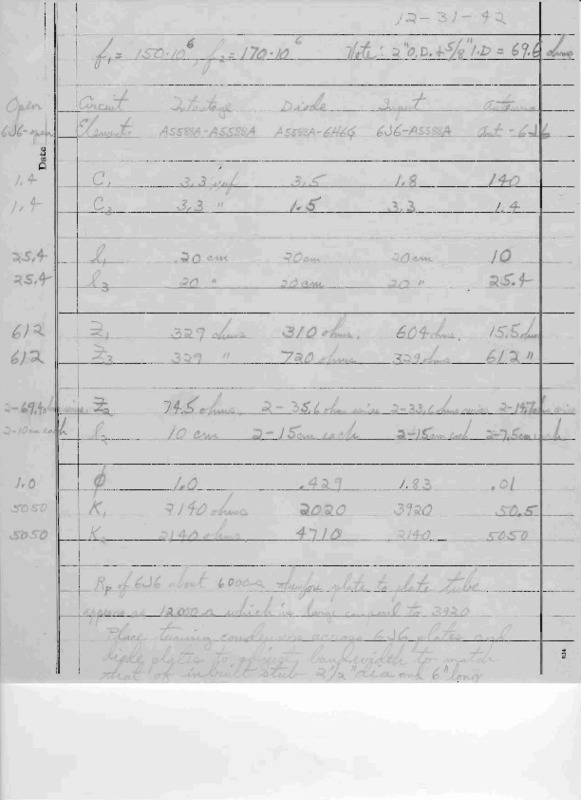 12-31-42
f₁ = 150·10⁶, f₂ = 170·10⁶ Note: 2" O.D. + 5/8" I.D = 69.6 ohms
Open Circuit Interstage Diode Input Antenna
6J6-open Element A5588A-A5588A A5588A-6H6G 6J6-A5588A Ant-6J6
Date
1.4 C₁ 3.3 μμf 3.5 1.8 140
1.4 C₃ 3.3 " 1.5 3.3 1.4
25.4 l₁ 20 cm 20cm 20cm 10
25.4 l₃ 20 " 20cm 20 " 25.4
612 Z₁ 329 ohms 310 ohms. 604 ohms. 15.5 ohms
612 Z₃ 329 " 720 ohms. 329 ohms 612 "
2-69.4 ohm wires Z₂ 74.5 ohms. 2-35.6 ohm wires 2-33.6 ohm wires
2-10cm each l₂ 10 cm 2-15cm each 2-15cm each 2-7.5cm each
1.0 ϕ 1.0 .429 1.83 .01
5050 K₁ 2140 ohms 2020 3920 50.5
5050 2140 ohms 4710 2140 5050
Rp of 6J6 about 6000Ω therefore plate to plate tube
appears as 12000Ω which is large compared to 3920
Place tuning condensers across 6J6 plates and
diode plates to adjust bandwidth to match
that of inbuilt stub 2 1/2" dia and 6" long